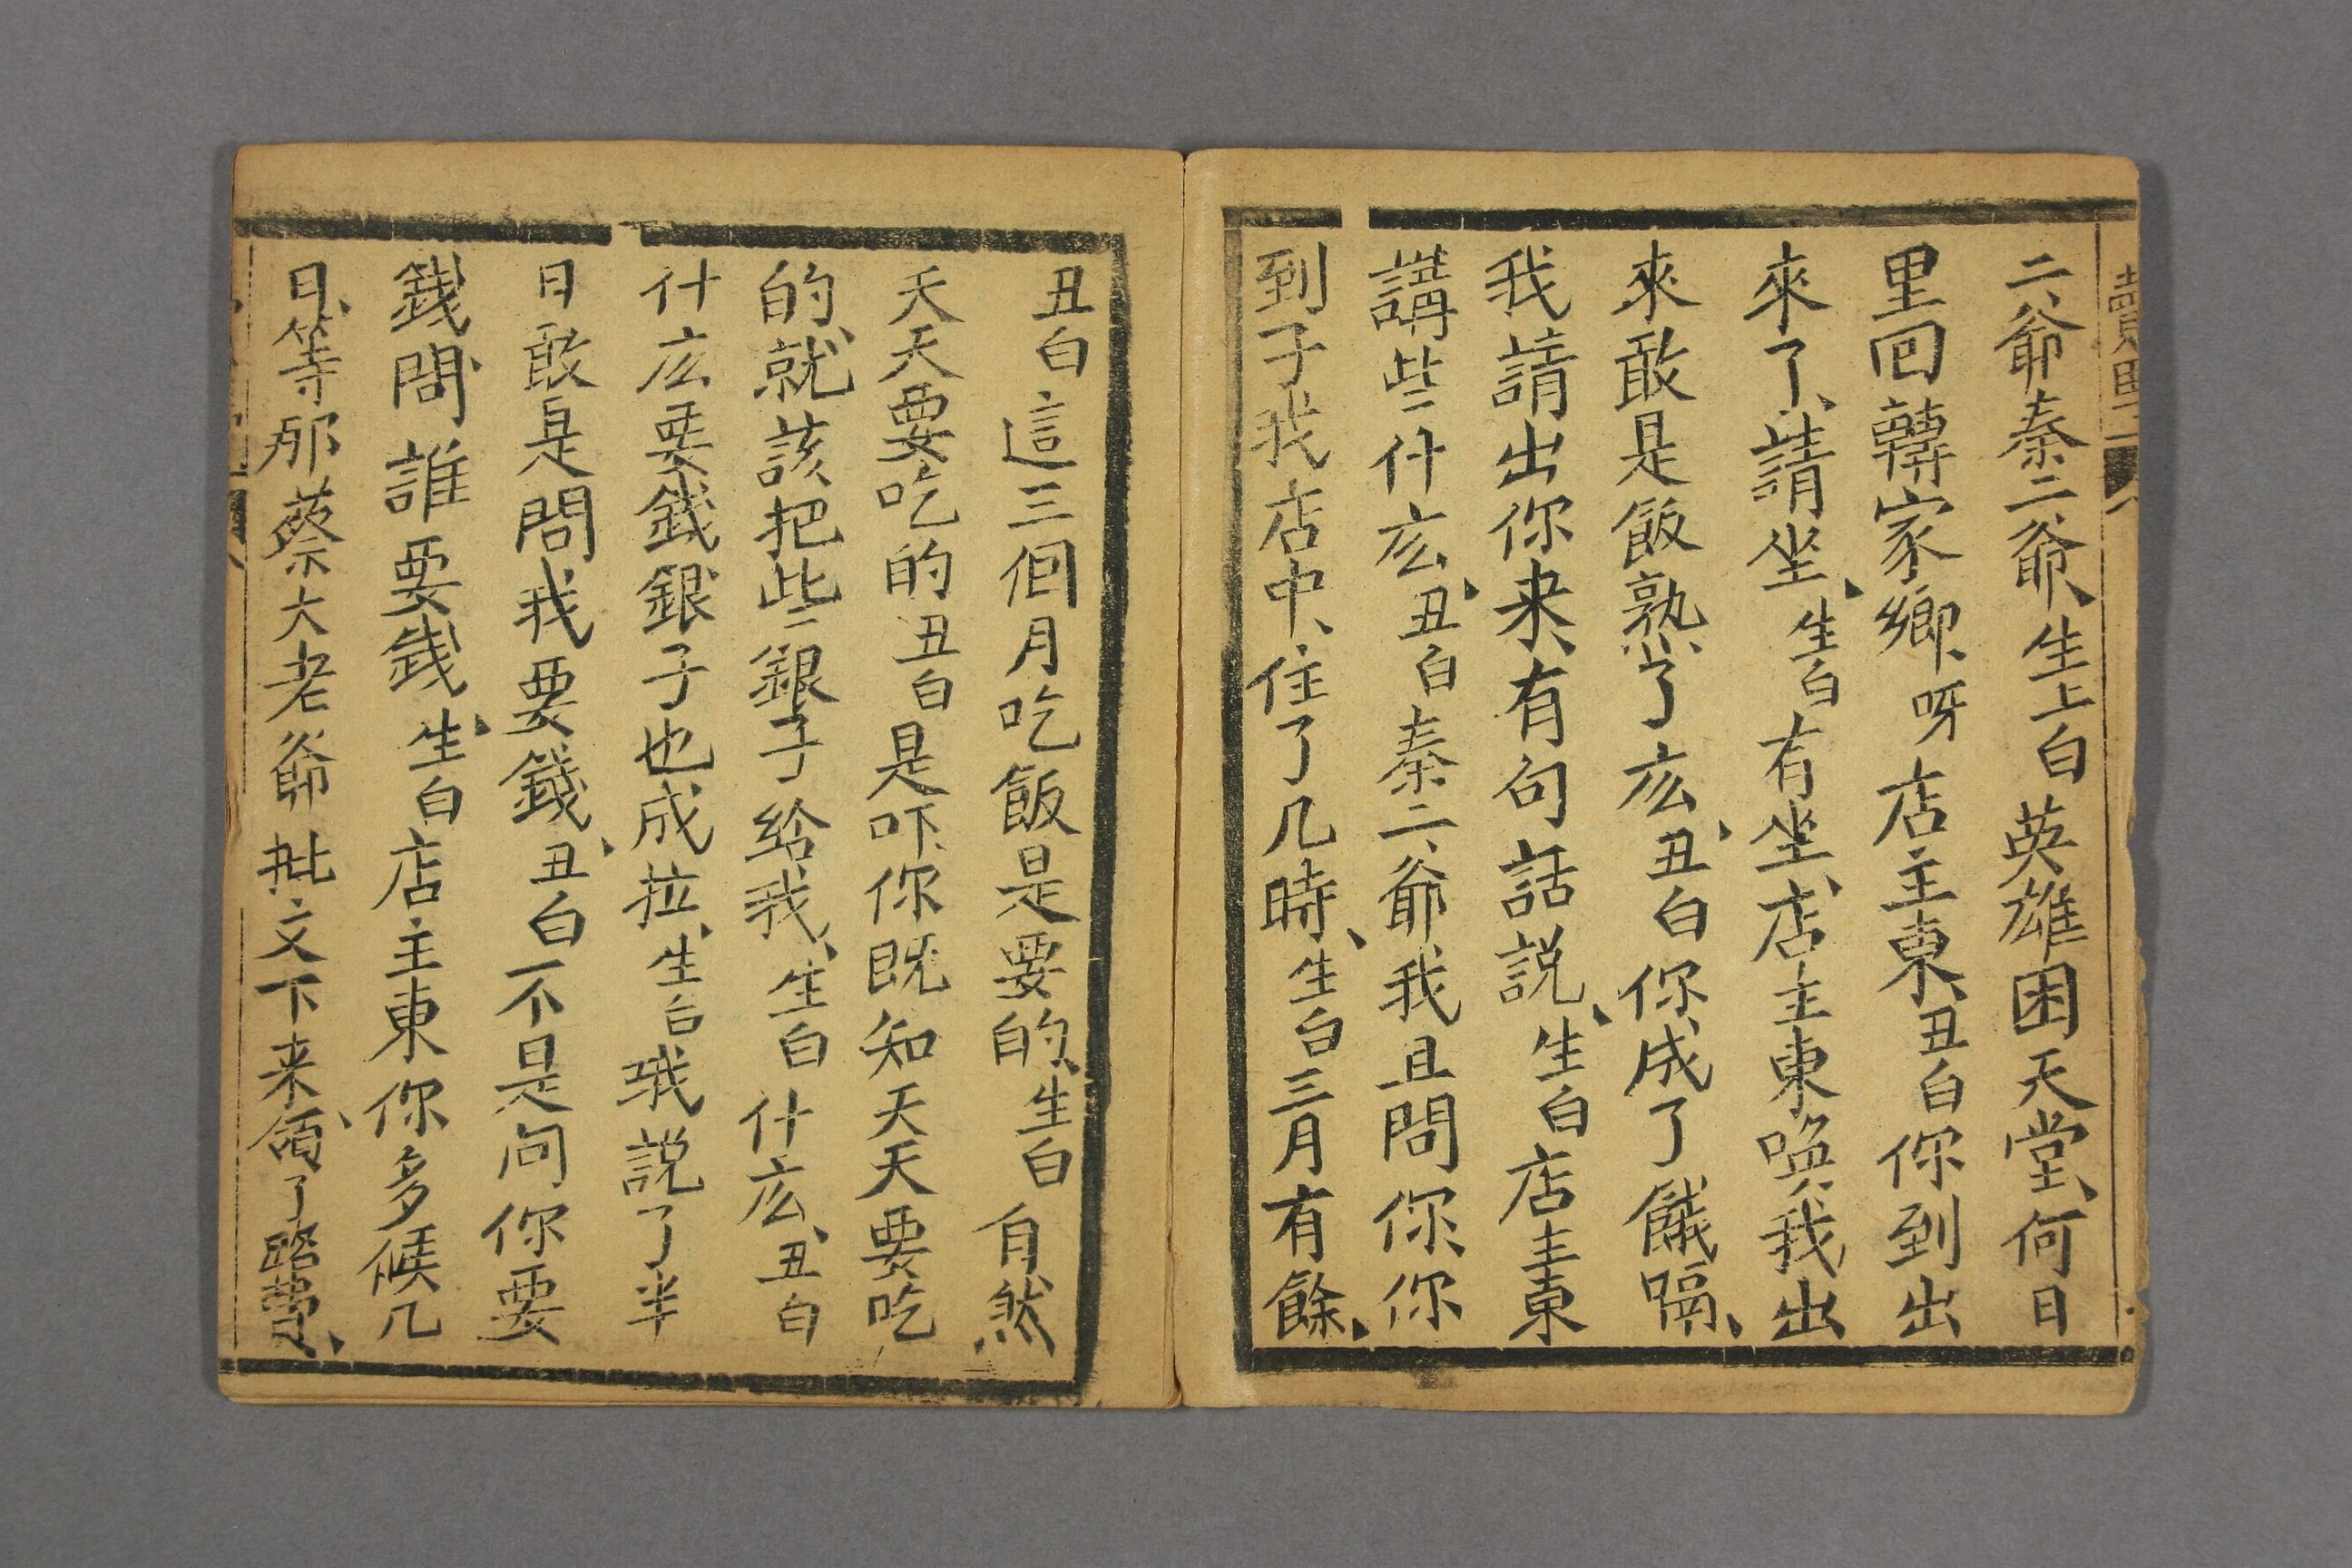 二爺秦二爺、生上白英雄困天堂、何日
里回轉家鄉、呀店主東、丑白你到出
來了、請坐、生白有坐、店主東喚我出
來敢是飯熟了広、丑白你成了餓嗝、
我請出你来、有句話説、生白店主東
講些什広、丑白秦二爺我且問你、你
到子我店中、住了几時、生白三月有餘、
丑白這三個月吃飯是要的、生白自然
天天要吃的丑白是吓、你既知天天要吃
的、就該把些銀子給我、生白什広、丑白
什広要錢銀子也成拉、生白我説了半
日敢是問我要錢、丑白不是问你要
錢問誰要錢、生白店主東你多候几
日、等那蔡大老爺批文下来、領了路費、